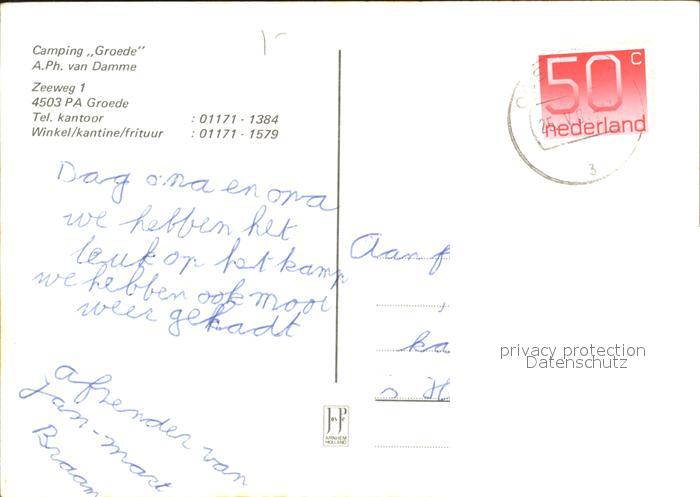 Camping „Groede”
A.Ph. van Damme
Zeeweg 1
4503 PA Groede
Tel. kantoor : 01171 - 1384
Winkel/kantine/frituur : 01171 - 1579
Dag oma en opa
we hebben het
leuk op het kamp
we hebben ook mooi
weer gehadt
afzender van
Jan-mart
Braam
50 c
nederland
3
Aan f
ka
s H
JosPe
ARNHEM
HOLLAND
privacy protection
Datenschutz